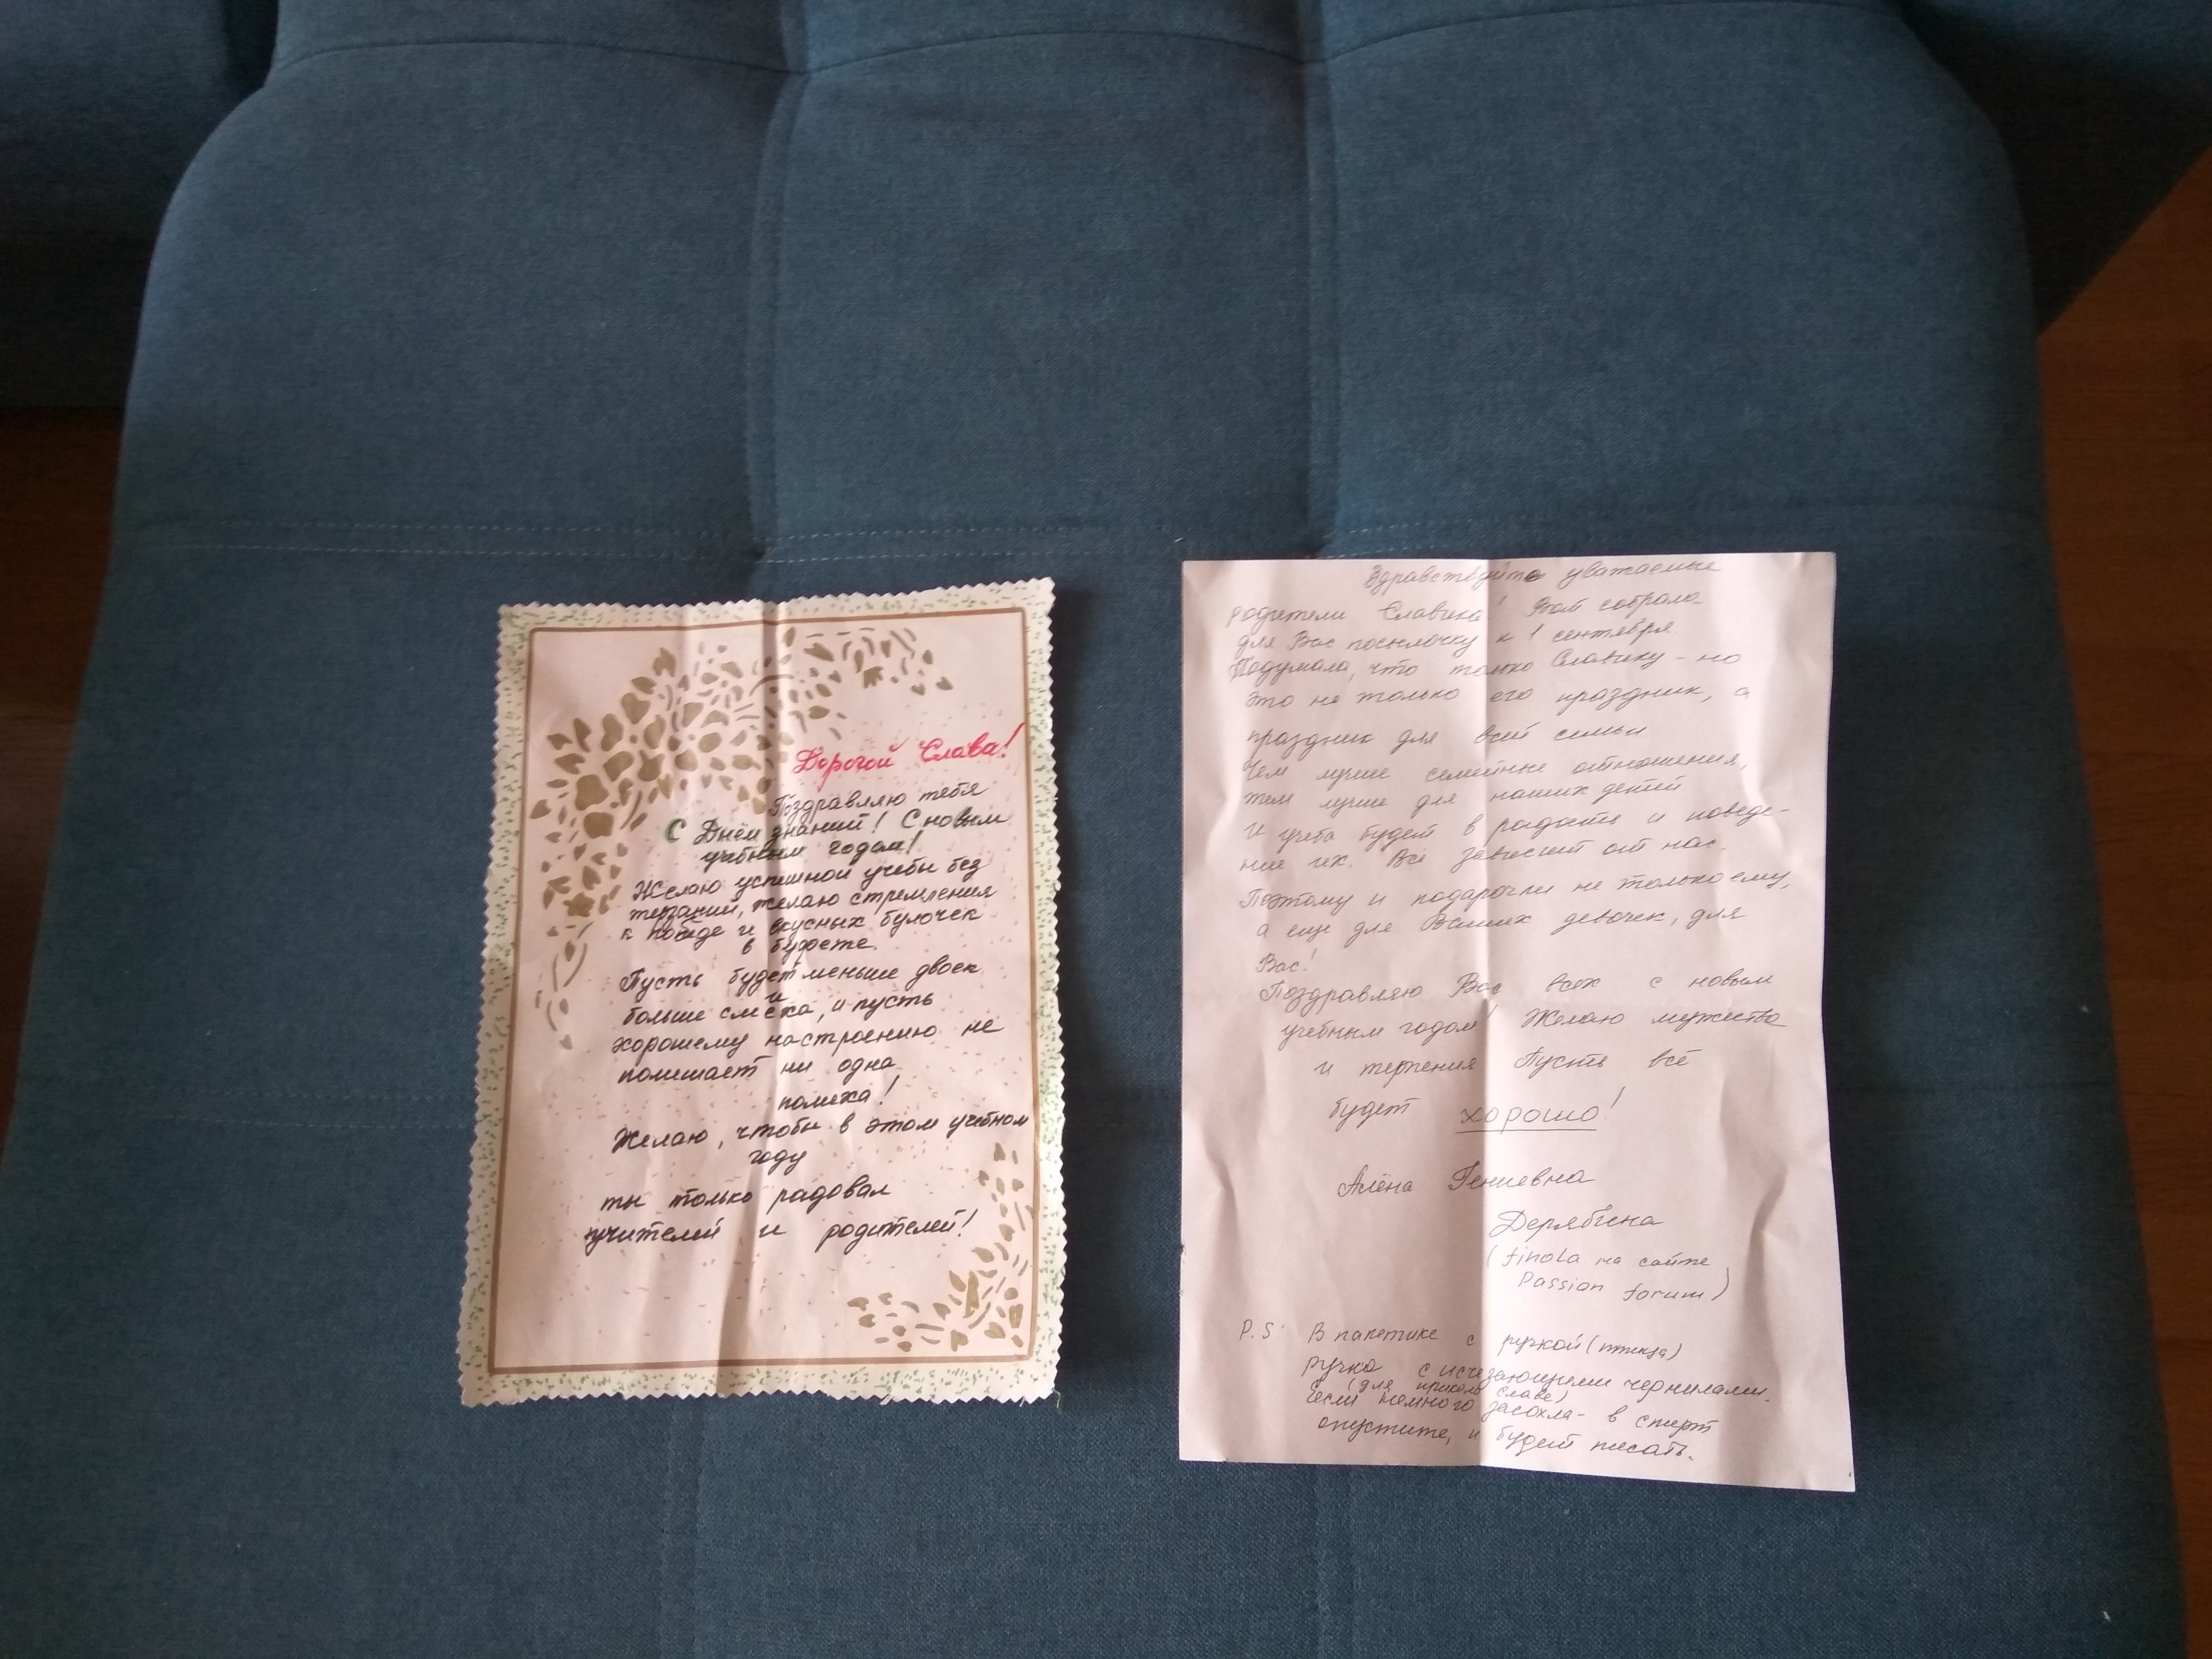 Дорогой Слава!
Поздравляю тебя
С Днём знаний! С новым
учебным годом!
Желаю успешной учебы без
терзаний, желаю стремления
к победе и вкусных булочек
в буфете.
Пусть будет меньше двоек
и
больше смеха, и пусть
хорошему настроению не
помешает ни одна
помеха!
Желаю, чтобы в этом учебном
году
ты только радовал
учителей и родителей!
Здравствуйте уважаемые
родители Славика! Вот собрала
для Вас посылочку к 1 сентября
Подумала, что только Славику - но
это не только его праздник, а
праздник для всей семьи
Чем лучше семейные отношения,
тем лучше для наших детей
И учеба будет в радость и поведе-
ние их. Всё зависит от нас.
Поэтому и подарочки не только ему,
а еще для Ваших девочек, для
Вас!
Поздравляю Вас всех с новым
учебным годом! Желаю мужества
и терпения Пусть всё
будет хорошо!
Алёна Гениевна
Дерябина
(finola на сайте
Passion forum)
P.S: В пакетике с ручкой (птица)
ручка с исчезающими чернилами.
(для прикола Славе)
Если немного засохла - в спирт
опустите, и будет писать.